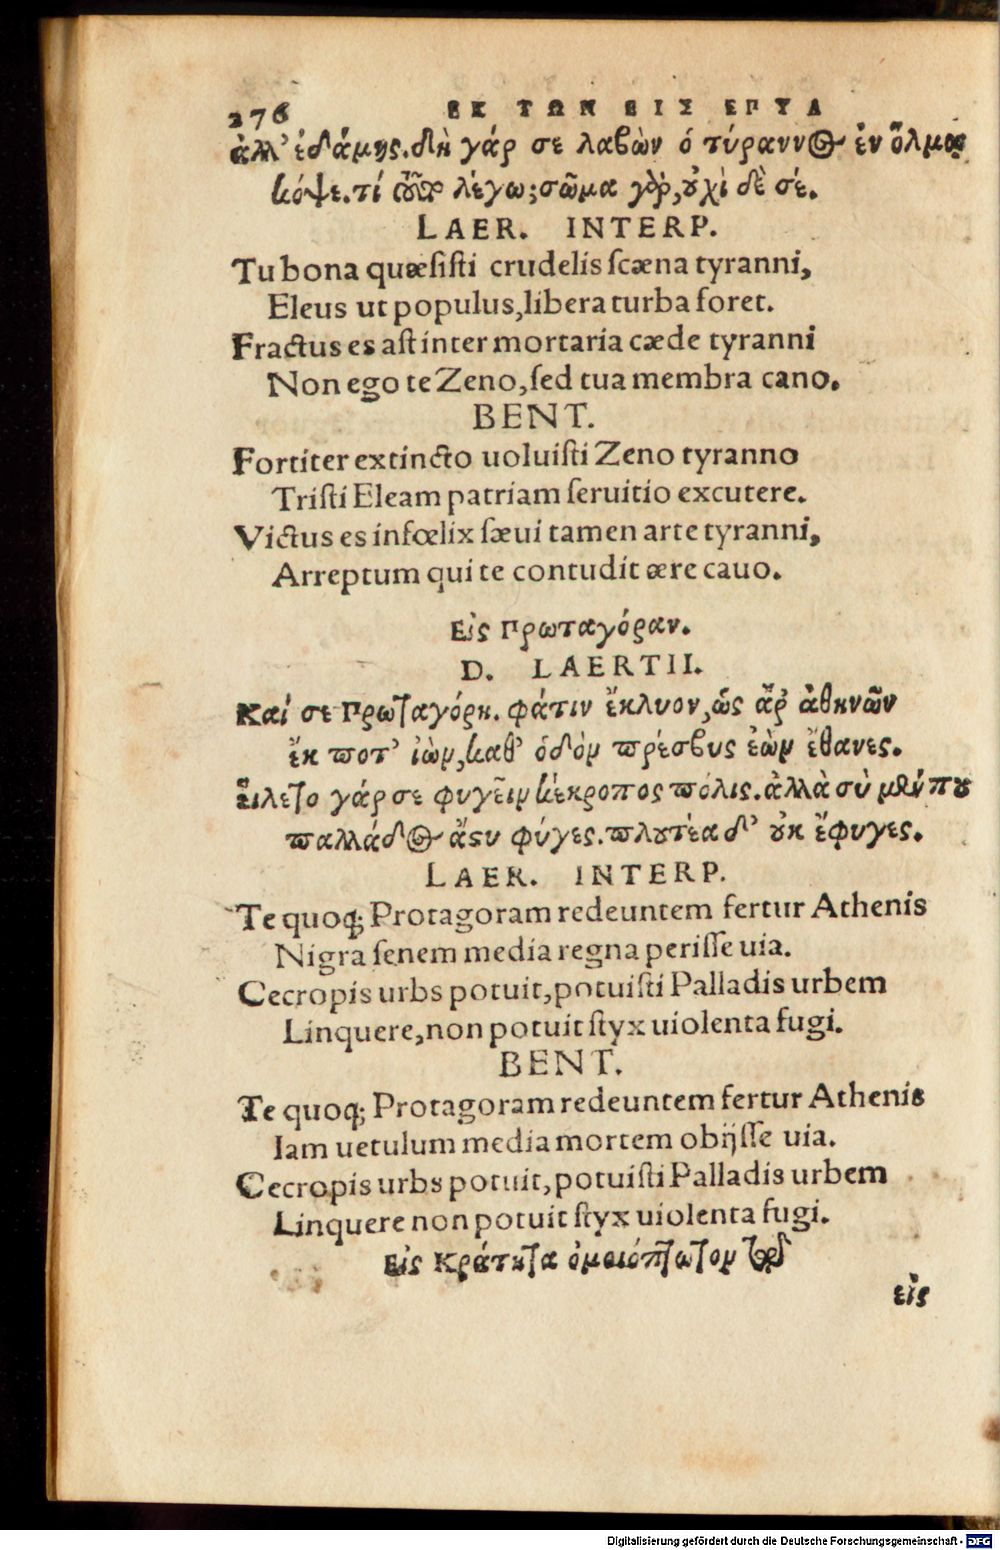 276 ΕΚ ΤΩΝ ΕΙΣ ΕΡΓΥΔ
ἀλλ' ἐδάμης. δὴ γάρ σε λαβὼν ὁ τύραννος ἐν ὅλμῳ
κόψε. τί λέγω; σῶμα γὰρ, οὐχὶ δὲ σέ.
LAER. INTERP.
Tu bona quæsisti crudelis scæna tyranni,
Eleus ut populus, libera turba foret.
Fractus es ast inter mortaria cæde tyranni
Non ego te Zeno, sed tua membra cano.
BENT.
Fortiter extincto uoluisti Zeno tyranno
Tristi Eleam patriam seruitio excutere.
Victus es infœlix sæui tamen arte tyranni,
Arreptum qui te contudit ære cauo.
Εἰς Πρωταγόραν.
D. LAERTII.
Καί σε Πρωταγόρη. φάτιν ἔκλυον, ὡς ἄρ ἀθηνῶν
ἔκ ποτ' ἰὼν, καθ' ὁδὸν πρέσβυς ἐὼν ἔθανες.
εἵλετο γάρ σε φυγεῖν κέκροπος πόλις. ἀλλὰ σὺ μέν που
παλλάδος ἄστυ φύγες. πλουτέα δ' οὐκ ἔφυγες.
LAER. INTERP.
Te quoq; Protagoram redeuntem fertur Athenis
Nigra senem media regna perisse uia.
Cecropis urbs potuit, potuisti Palladis urbem
Linquere, non potuit styx uiolenta fugi.
BENT.
Te quoq; Protagoram redeuntem fertur Athenis
Iam uetulum media mortem obijsse uia.
Cecropis urbs potuit, potuisti Palladis urbem
Linquere non potuit styx uiolenta fugi.
Εἰς Κράτητα ὁμοιόπτωτον
εἰς
Digitalisierung gefördert durch die Deutsche Forschungsgemeinschaft - DFG